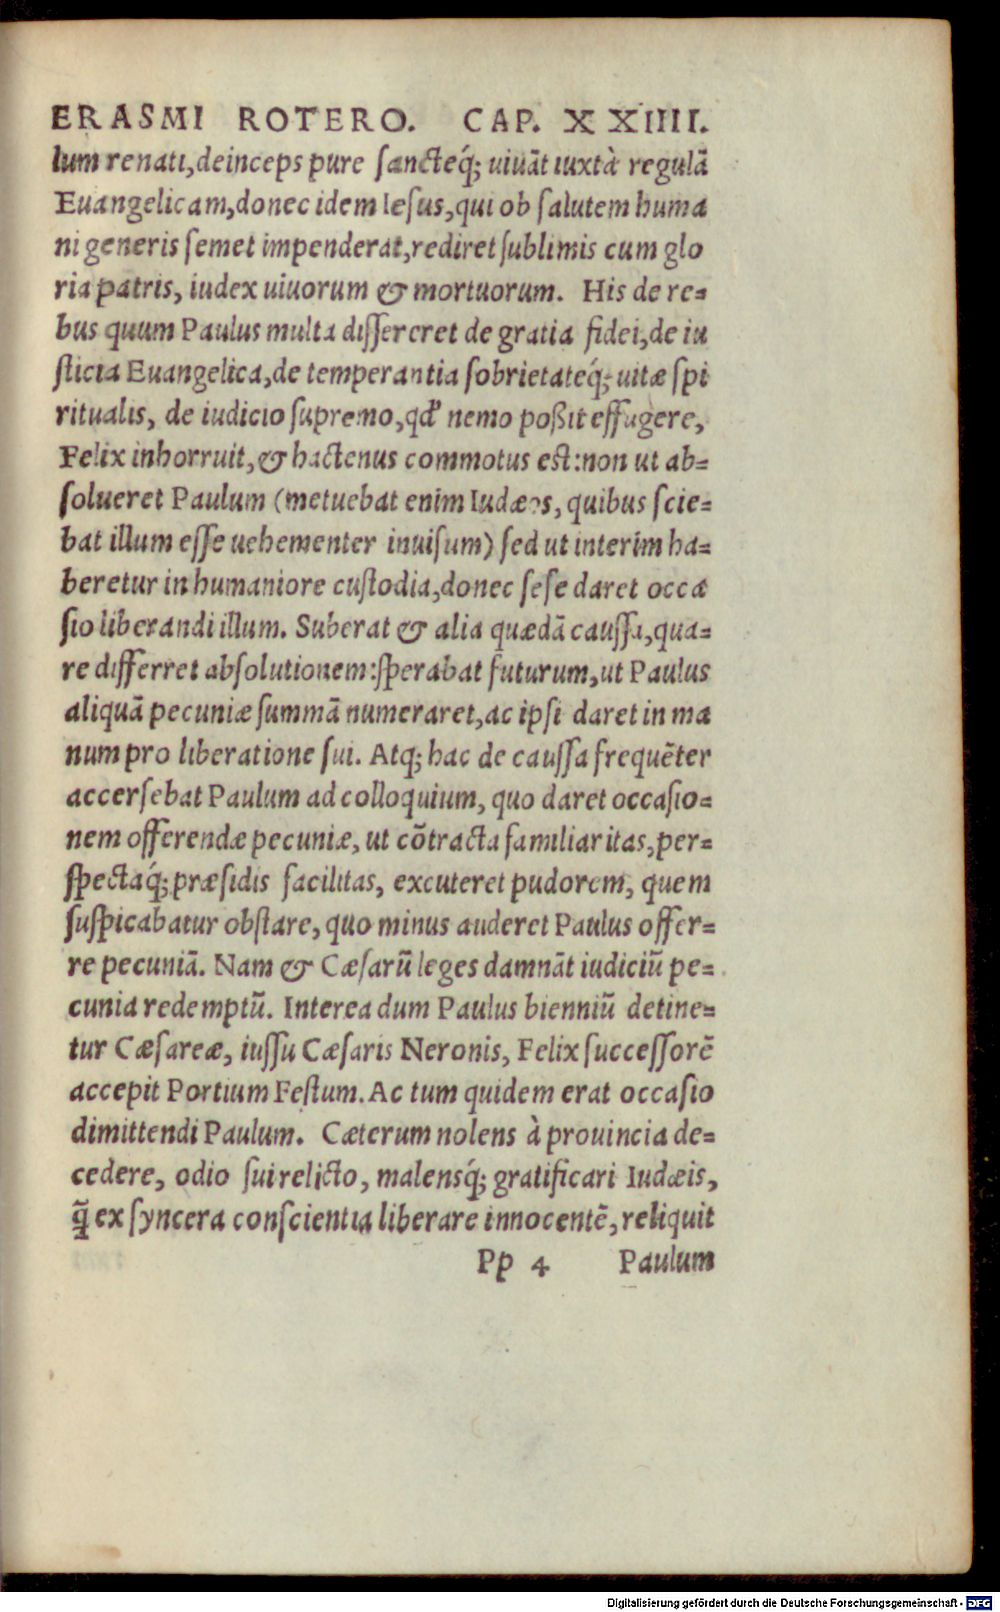 ERASMI ROTERO. CAP. XXIIII.
lum renati, deinceps pure sancteq́; uiuāt iuxtà regulā
Euangelicam, donec idem Iesus, qui ob salutem huma
ni generis semet impenderat, rediret sublimis cum glo
ria patris, iudex uiuorum & mortuorum. His de re=
bus quum Paulus multa dissereret de gratia fidei, de iu
sticia Euangelica, de temperantia sobrietateq́; uitæ spi
ritualis, de iudicio supremo, qd' nemo poßit effugere,
Felix inhorruit, & hactenus commotus est: non ut ab=
solueret Paulum (metuebat enim Iudæos, quibus scie=
bat illum esse uehementer inuisum) sed ut interim ha=
beretur in humaniore custodia, donec sese daret occa
sio liberandi illum. Suberat & alia quædā caussa, qua=
re differret absolutionem: sperabat futurum, ut Paulus
aliquā pecuniæ summā numeraret, ac ipsi daret in ma
num pro liberatione sui. Atq; hac de caussa frequēter
accersebat Paulum ad colloquium, quo daret occasio=
nem offerendæ pecuniæ, ut cōtracta familiaritas, per=
spectaq́; præsidis facilitas, excuteret pudorem, quem
suspicabatur obstare, quo minus auderet Paulus offer=
re pecuniā. Nam & Cæsarū leges damnāt iudiciū pe=
cunia redemptū. Interea dum Paulus bienniū detine=
tur Cæsareæ, iussu Cæsaris Neronis, Felix successorē
accepit Portium Festum. Ac tum quidem erat occasio
dimittendi Paulum. Cæterum nolens à prouincia de=
cedere, odio sui relicto, malensq́; gratificari Iudæis,
q̃ ex syncera conscientia liberare innocentē, reliquit
Pp 4 Paulum
Digitalisierung gefördert durch die Deutsche Forschungsgemeinschaft - DFG